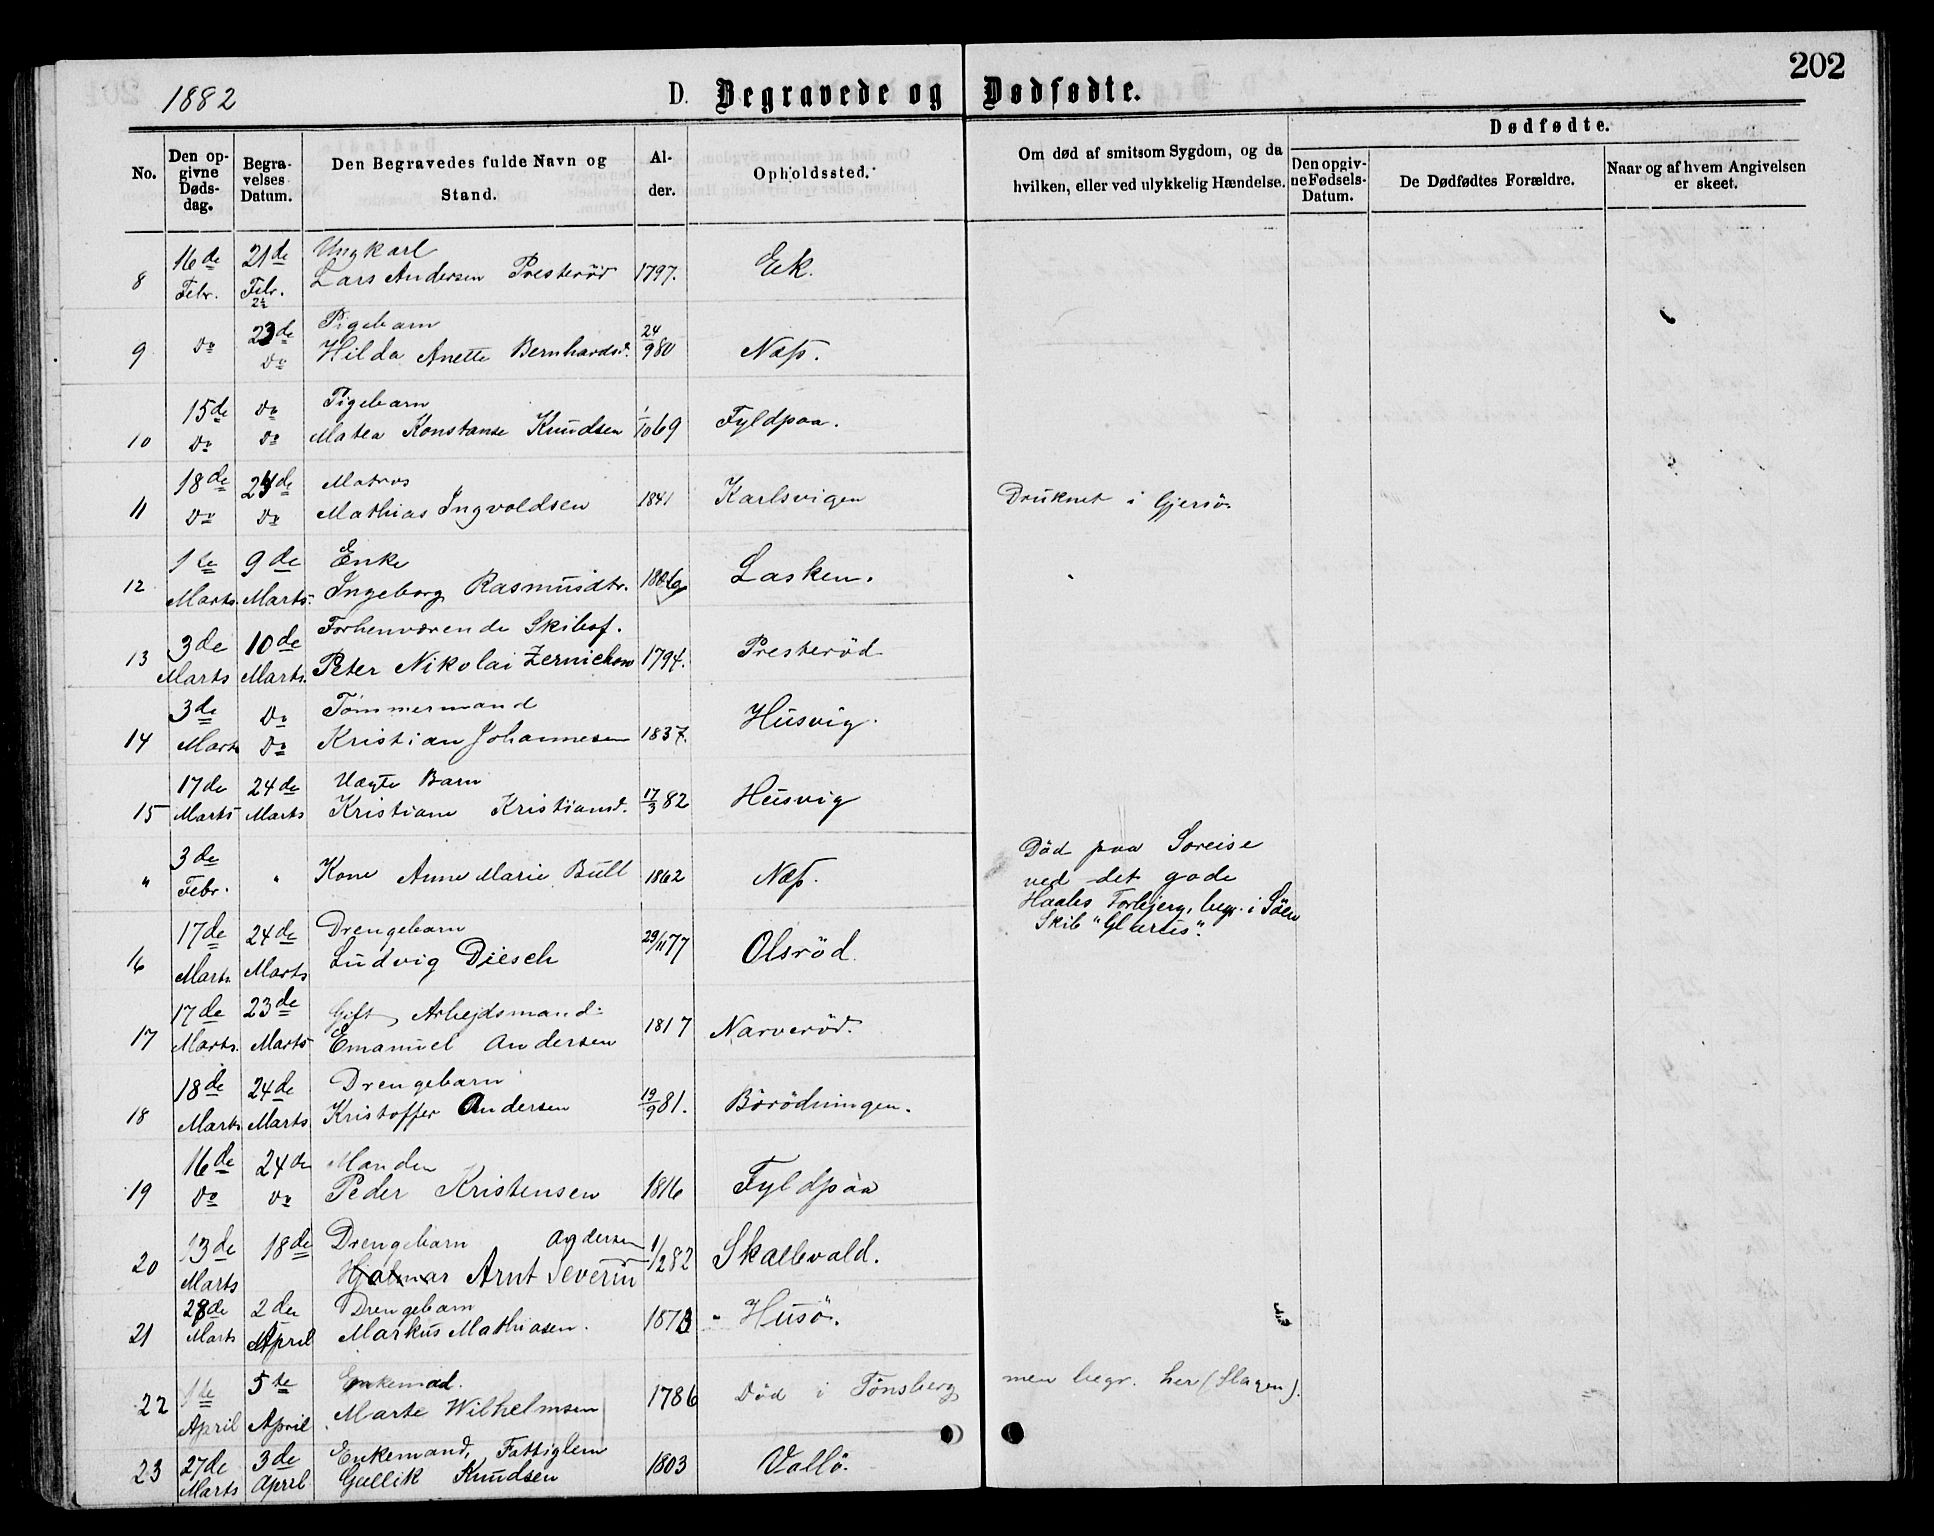 1882 D. Begravede og Dødfødte. 202
No. Den opgivne Dødsdag. Begravelses Datum. Den Begravedes fulde Navn og Stand. Alder. Opholdssted. Om død af smitsom Sygdom, og da hvilken, eller ved ulykkelig Hændelse. Dødfødte. Den opgivne Fødsels-Datum. De Dødfødtes Forældre. Naar og af hvem Angivelsen er skeet.
16de 21de Ungkarl
8 Febr. Febr. Lars Andersen Presterød 1797. Ek.
do 23de Pigebarn
9 do Hilda Anette Bernhardsd. 24/9 80 Næs.
15de do Pigebarn
10 do do Matea Konstanse Knudsen 1/10 69 Fyldpaa.
18de 24de Matros
11 do do Mathias Ingvoldsen 1841 Karlsvigen Druknet i Gjersø
1te 9de Enke
12 Marts. Marts. Ingeborg Rasmusdtr. Lasken.
3de 10de Forhenværende Skibsf.
13 Marts Marts. Peter Nikolai Zernichow 1794. Presterød
3de do Tømmermand
14 Marts do Kristian Johannesen 1837. Husvig.
17de 24de Uægte Barn
15 Marts Marts Kristiane Kristiansd. 17/3 82 Husvig
3de Død paa Søreise
" Febr. " Kone Anne Marie Bull 1862 Næs. ved det gode
Haabs Forbjerg, begr. i Søen
17de 24de Drengebarn Skib "Glarus".
16 Marts. Marts Ludvig Diesch 29/11 77 Olsrød.
17de 23de Gift Arbejdsmand
17 Marts. Marts Emanuel Andersen 1817 Narverød.
18de 24de Drengebarn
18 Marts Marts Kristoffer Andersen 19/9 81. Børødningen.
16de 24de Manden
19 do do Peder Kristensen 1816 Fyldpaa
13de 18de Drengebarn Andersen
20 Marts Hjalmar Arnt Severin 1/2 82 Skallevald.
28de 2den Drengebarn
21 Marts April Markus Mathiasen. 1873 Husø.
1de 5te Enkemad.
22 April April Marte Wilhelmsen 1786 Død i Tønsberg men begr. her (Slagen).
27de 3de Enkemand, Fattiglem
23 Marts April Gullik Knudsen 1803 Vallø.